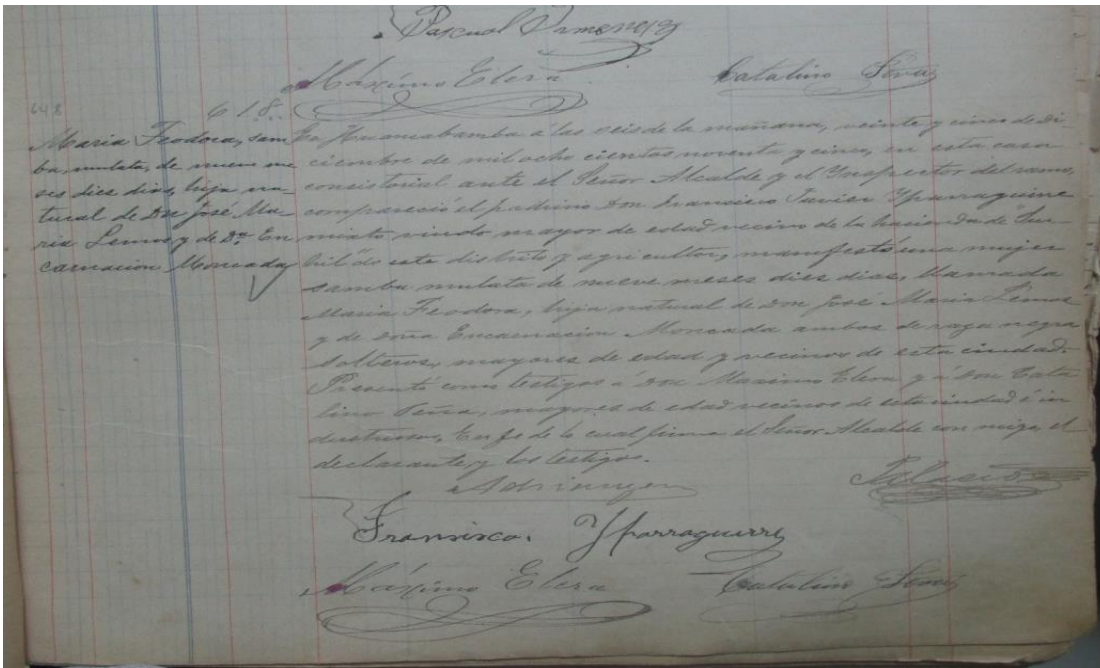 Pascual Ximenez
Máximo Elera
Catalino Peña
648
618.
Maria Feodora, sam
ba, mulata, de nueve me
ses diez dias, hija na-
tural de Dn José Ma-
ria Lemos y de Dª En
carnacion Moncada
En Huancabamba á las seis de la mañana, veinte y cinco de Di-
ciembre de mil ocho cientos noventa y cinco, en esta casa
consistorial ante el Señor Alcalde y el Inspector del ramo,
compareció el padrino Don Francisco Javier Yparraguirre
mixto viudo mayor de edad vecino de la hacienda de
de este distrito y agricultor, manifestó una mujer
samba mulata de nueve meses diez dias, llamada
Maria Feodora, hija natural de Don José Maria Lemos
y de doña Encarnacion Moncada ambos de raza negra
solteros, mayores de edad y vecinos de esta ciudad.
Presentó como testigos á Don Maximo Elera y á Don Cata
lino Peña, mayores de edad vecinos de esta ciudad é in
dustriosos, En fe de lo cual firma el Señor Alcalde con migo, el
declarante y los testigos.
Fransisco. Yparraguirre
Máximo Elera
Catalino Peña